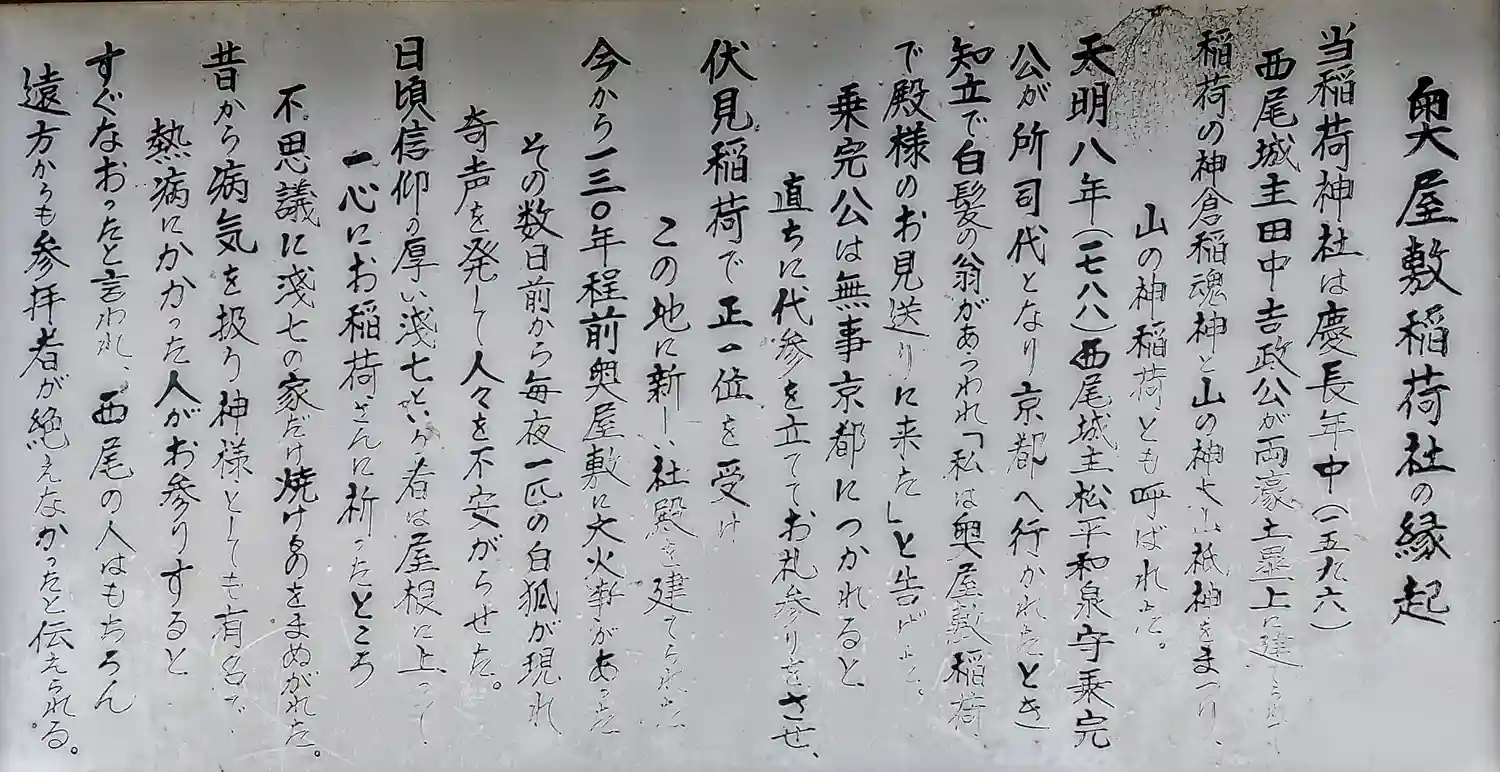 奥屋敷稲荷社の縁起
当稲荷神社は慶長年中（一五九六）
西尾城主田中吉政公が両濠土塁上に建てられ
稲荷の神倉稲魂神と山の神大山祇神をまつり、
山の神稲荷とも呼ばれた。
天明八年（一七八八）西尾城主松平和泉守乗完
公が所司代となり京都へ行かれたとき
知立で白髪の翁があらわれ「私は奥屋敷稲荷
で殿様のお見送りに来た」と告げた。
乗完公は無事京都につかれると
直ちに代参を立ててお札参りをさせ、
伏見稲荷で正一位を受け
この地に新しい社殿を建てられた
今から一三〇年程前奥屋敷に大火事があった
その数日前から毎夜一匹の白狐が現れ
奇声を発して人々を不安がらせた。
日頃信仰の厚い浅七という者は屋根に上って
一心にお稲荷さんに祈ったところ
不思議に浅七の家だけ焼けるのをまぬがれた。
昔から病気を扱う神様としても有名で
熱病にかかった人がお参りすると
すぐなおったと言われ、西尾の人はもちろん
遠方からも参拝者が絶えなかったと伝えられる。